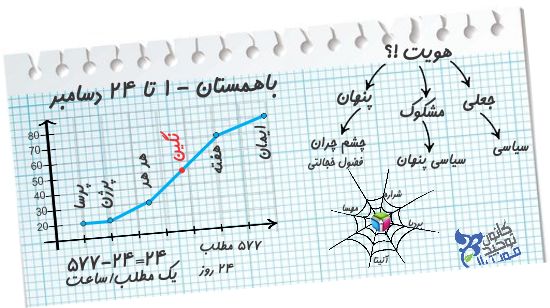 باهمستان - ۱ تا ۲۴ دسامبر
80
70
60
50
40
30
20
پرسا
پرژن
هر هر
نگین
هفته
ایمان
۵۷۷-۲۴=۲۴
یک مطلب/ساعت
۵۷۷ مطلب
۲۴ روز
هویت !؟
پنهان
مشکوک
جعلی
چشم چران
فضول خجالتی
سیاسی پنهان
سیاسی
شراره
مهسا
بردیا
آتیه
کانون
توحید